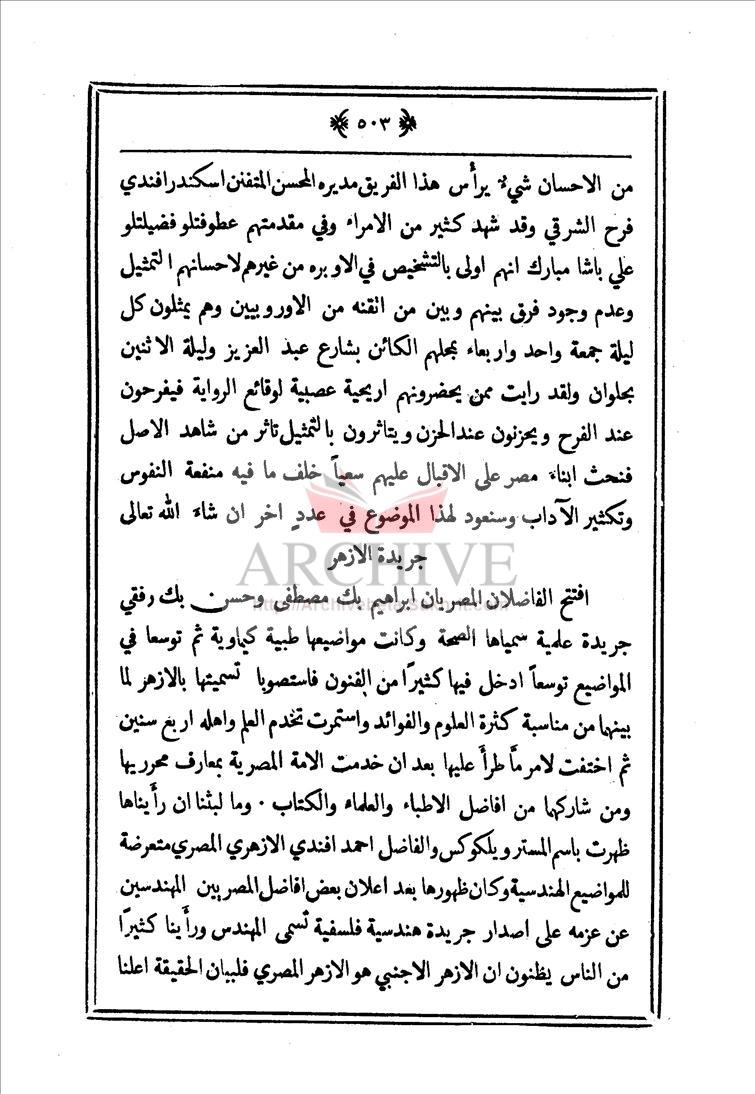 ﴿ ٥٠٣ ﴾
من الاحسان شيءٌ يرأس هذا الفريق مديره المحسن المتفنن اسكندر افندي
فرح الشرقي وقد شهد كثير من الامراء وفي مقدمتهم عطوفتلو فضيلتلو
علي باشا مبارك انهم اولى بالتشخيص في الاوبره من غيرهم لاحسانهم التمثيل
وعدم وجود فرق بينهم وبين من اتقنه من الاوروبيين وهم يمثلون كل
ليلة جمعة واحد واربعاء بمحلهم الكائن بشارع عبد العزيز وليلة الاثنين
بحلوان ولقد رايت ممن يحضرونهم اريحية عصبية لوقائع الرواية فيفرحون
عند الفرح ويحزنون عند الحزن ويتاثرون بالتمثيل تاثر من شاهد الاصل
فنحث ابناء مصر على الاقبال عليهم سعياً خلف ما فيه منفعة النفوس
وتكثير الآداب وسنعود لهذا الموضوع في عددٍ اخر ان شاء الله تعالى
جريدة الازهر
ARCHIVE
افتتح الفاضلان المصريان ابراهيم بك مصطفى وحسن بك رفقي
جريدة علمية سمياها الصحة وكانت مواضيعها طبية كيماوية ثم توسعا في
المواضيع توسعاً ادخل فيها كثيرًا من الفنون فاستصوبا تسميتها بالازهر لما
بينهما من مناسبة كثرة العلوم والفوائد واستمرت تخدم العلم واهله اربع سنين
ثم اختفت لامر مَّا طرأَ عليها بعد ان خدمت الامة المصرية بمعارف محرريها
ومن شاركهما من افاضل الاطباء والعلماء والكتاب . وما لبثنا ان رأيناها
ظهرت باسم المستر ويلكوكس والفاضل احمد افندي الازهري المصري متعرضة
للمواضيع الهندسية وكان ظهورها بعد اعلان بعض افاضل المصريين المهندسين
عن عزمه على اصدار جريدة هندسية فلسفية تسمى المهندس ورأينا كثيرًا
من الناس يظنون ان الازهر الاجنبي هو الازهر المصري فلبيان الحقيقة اعلنا